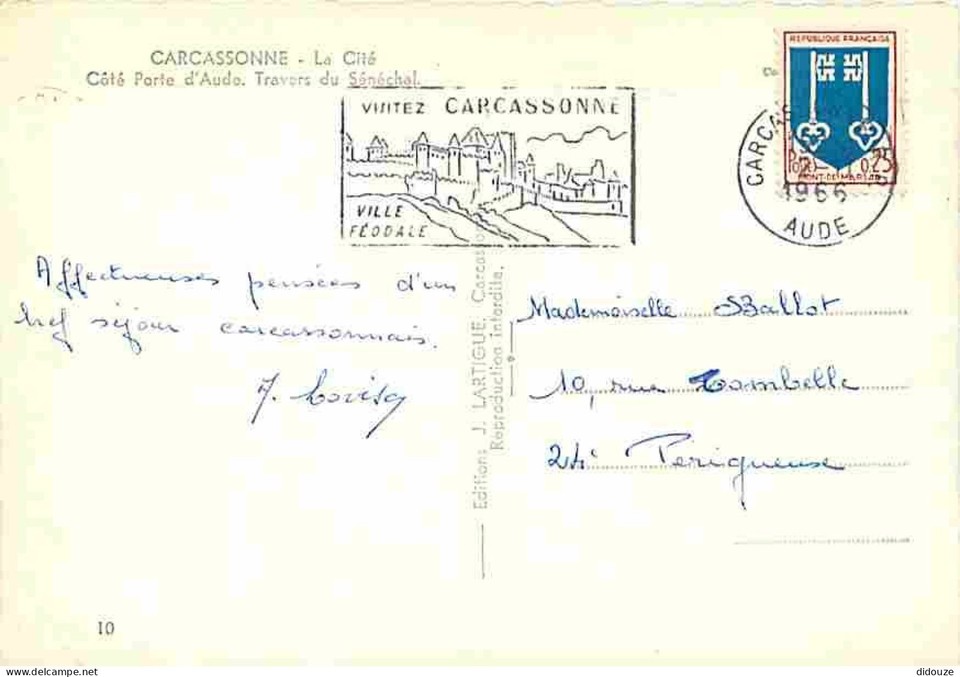 CARCASSONNE - La Cité
Côté Porte d'Aude. Travers du Sénéchal.
VISITEZ CARCASSONNE
VILLE
FÉODALE
REPUBLIQUE FRANÇAISE
0,25
MONT-DE-MARSAN
1966
AUDE
Affectueuses pensées d'un
bref séjour carcassonnais.
Editions J. LARTIGUE, Carcasso
Reproduction interdite.
Mademoiselle Ballot
10, rue Combelle
24 Perigueuse
10
delcampe.net
didouze